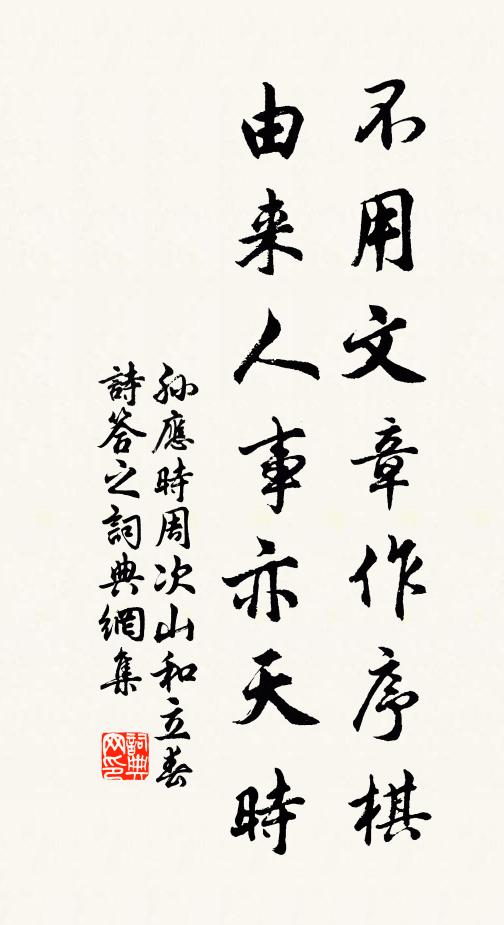 不用文章作序棋
由来人事亦天時
孫應時周次山和立春
詩答之詞典網集
詞典網印